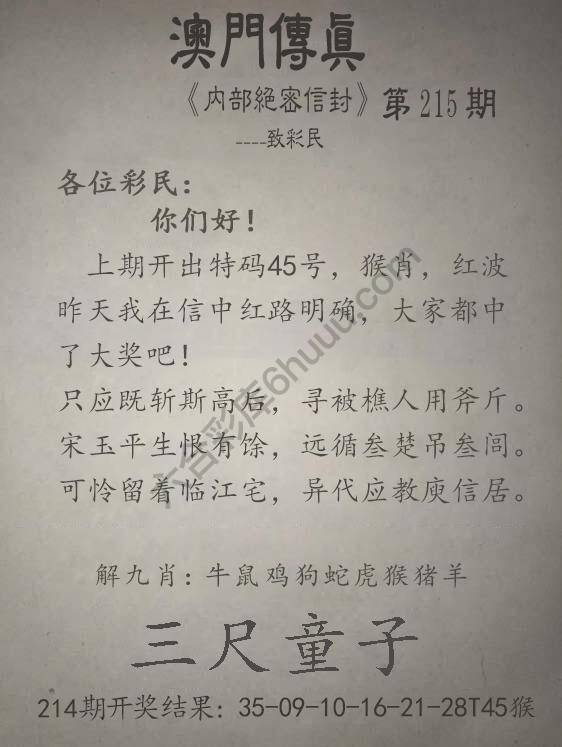 澳門傳眞
《内部絕密信封》第215期
----致彩民
各位彩民：
你们好！
上期开出特码45号，猴肖，红波
昨天我在信中红路明确，大家都中
了大奖吧！
只应既斩斯高后，寻被樵人用斧斤。
宋玉平生恨有馀，远循叁楚吊叁闾。
可怜留着临江宅，异代应教庾信居。
解九肖：牛鼠鸡狗蛇虎猴猪羊
三尺童子
214期开奖结果：35-09-10-16-21-28T45猴
六合彩库6huuu.com